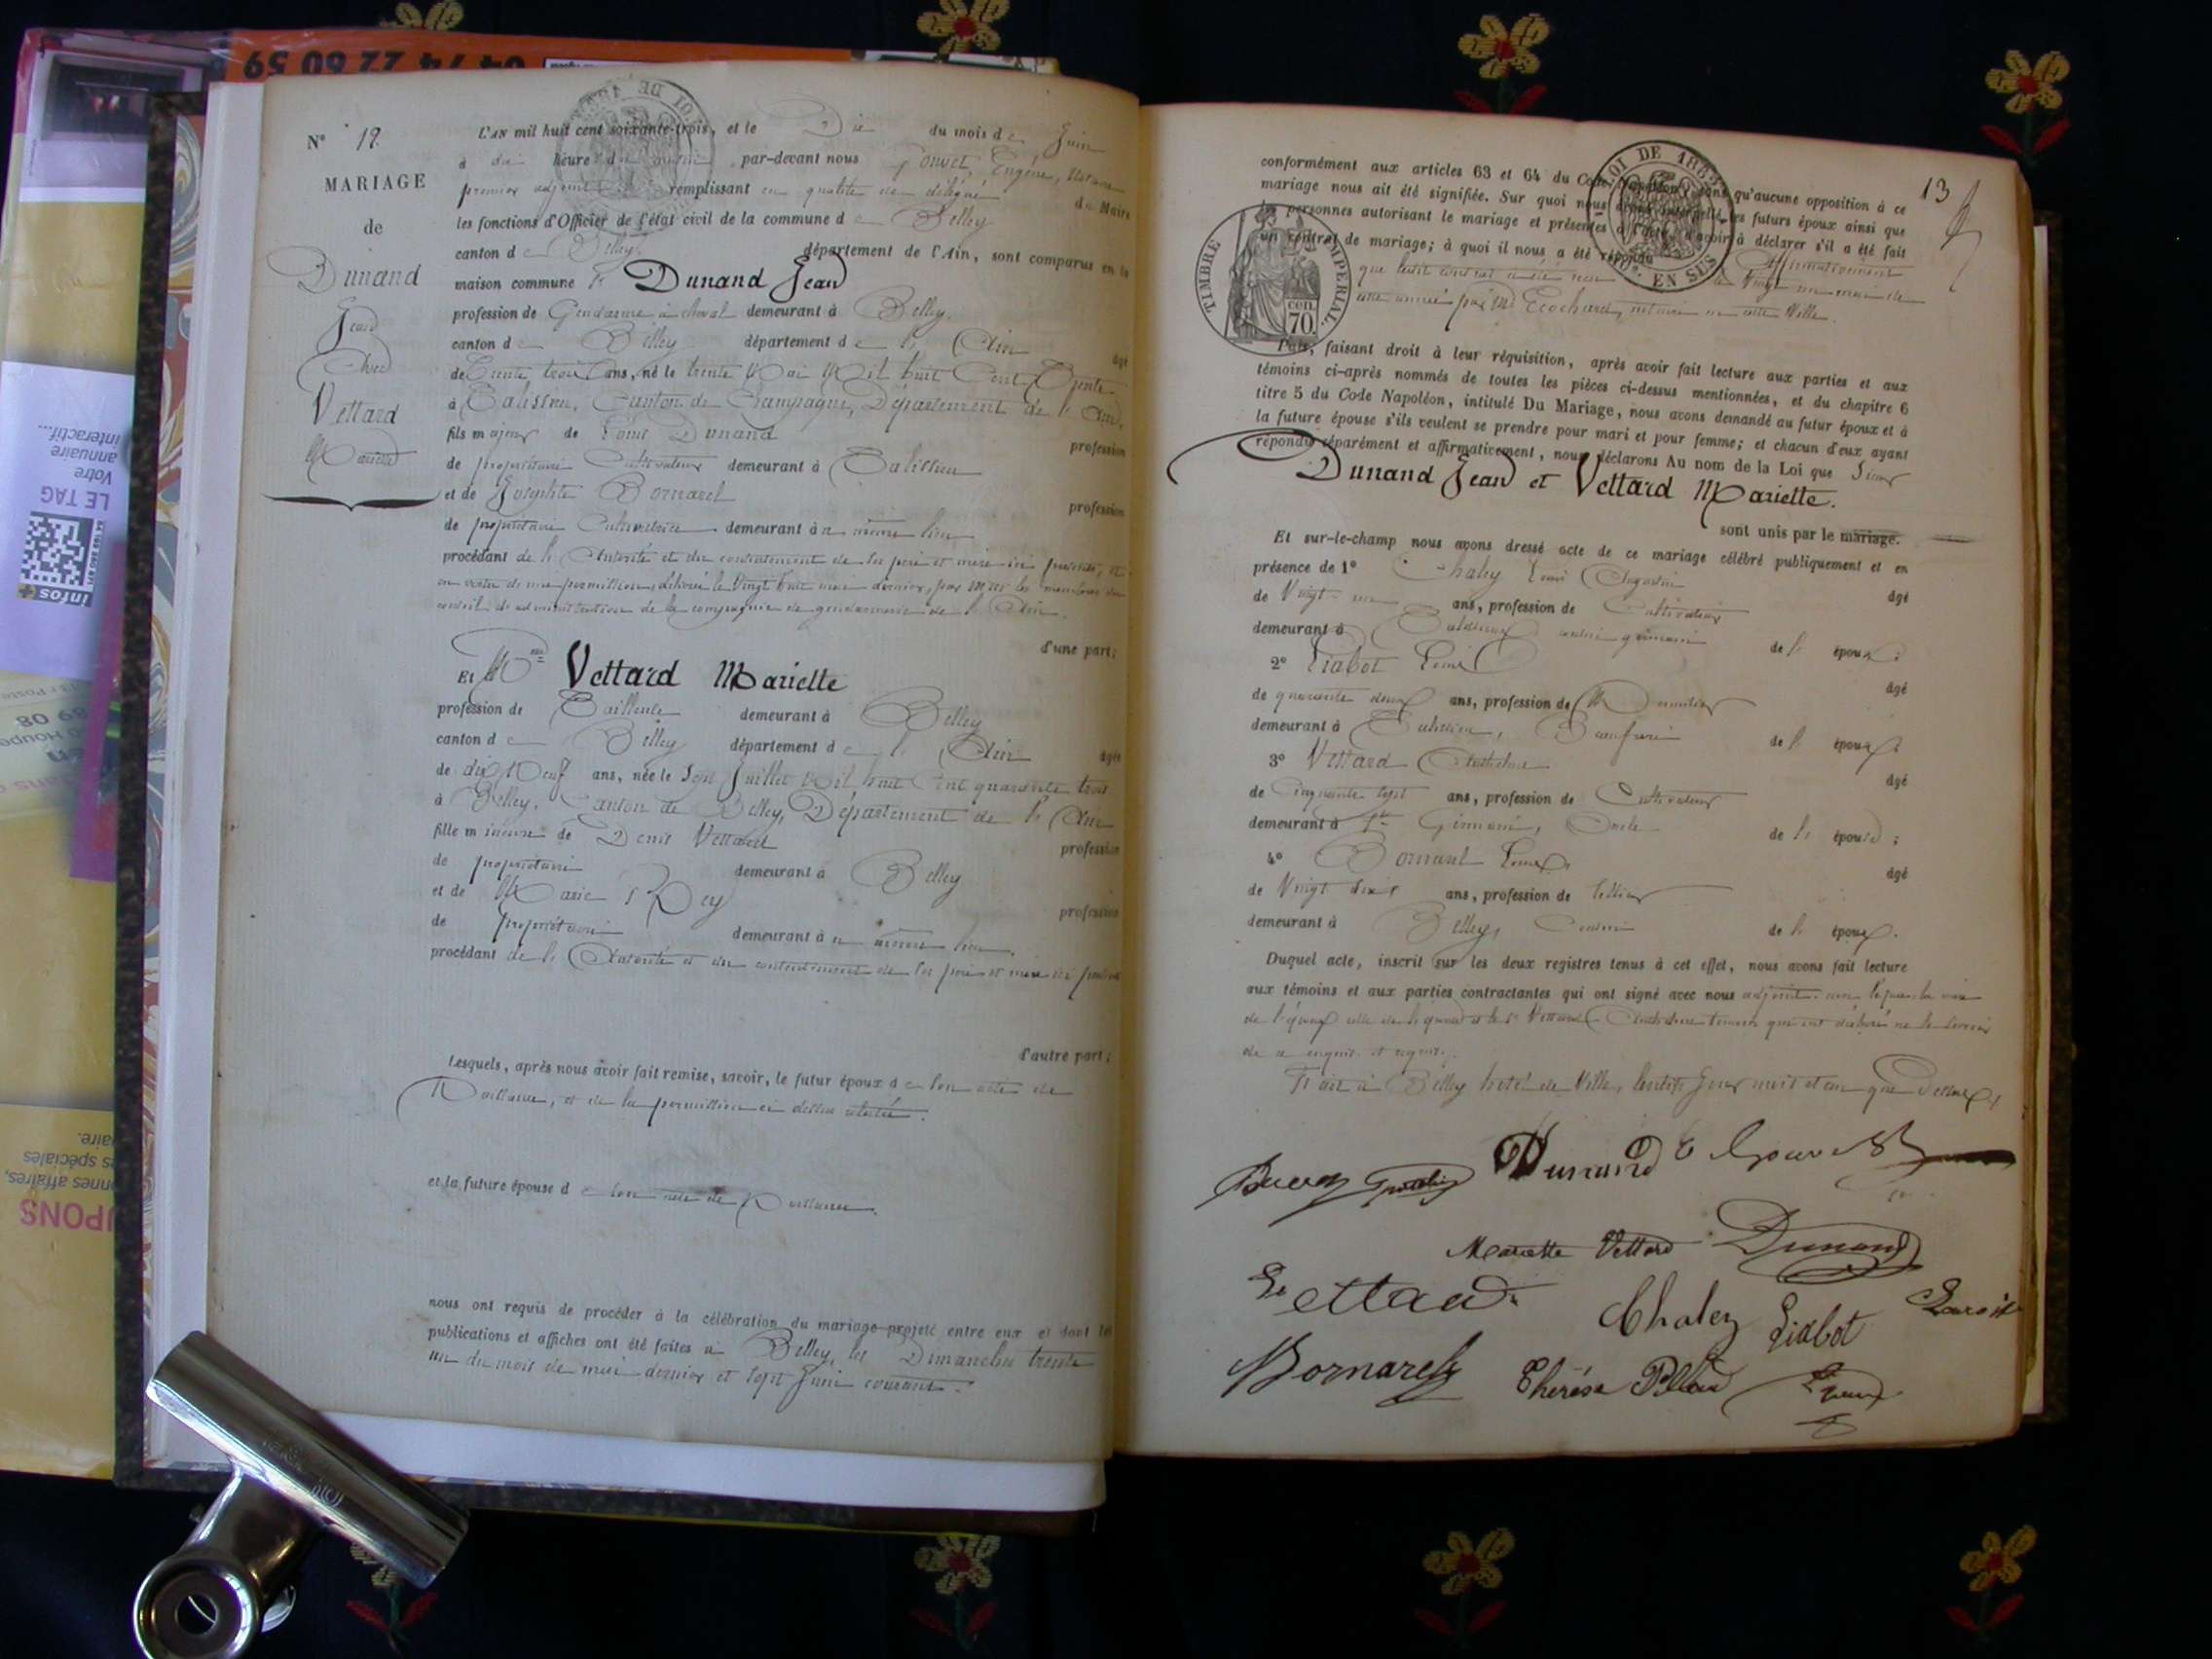 N° 12.
MARIAGE
de
Dunand
Jean
Avec
Vettard
Mariette
L'AN mil huit cent soixante-trois, et le Dix du mois de Juin
à dix heures du par-devant nous Gouvet, Eugène, Notaire
premier adjoint remplissant en qualité de délégué du Maire
les fonctions d'Officier de l'état civil de la commune de Belley
canton de Belley département de l'Ain, sont comparus en la
maison commune Sr Dunand Jean
profession de Gendarme à cheval demeurant à Belley.
canton de Belley département de l'Ain âgé
de Trente trois ans, né le trente Mai Mil huit Cent Trente
à Talissieu, Canton de Champagne, Département de l'Ain,
fils majeur de Louis Dunand profession
de propriétaire Cultivateur demeurant à Talissieu
et de Josephte Bornarel profession
de propriétaire Cultivatrice demeurant à même lieu
procédant de l'Autorité et du consentement de ses père et mère ici présents, et
en vertu d'une permission, délivrée le Vingt huit mai dernier, par MM les membres du
conseil d'administration de la compagnie de gendarmerie de l'Ain.
d'une part;
Et Melle Vettard Mariette
profession de Tailleuse demeurant à Belley
canton de Belley département de l'Ain âgée
de dix Neuf ans, née le Sept Juillet Mil huit Cent quarante trois
à Belley, Canton de Belley, Département de l'Ain
fille mineure de Denis Vettard profession
de propriétaire demeurant à Belley
et de Marie Rey profession
de propriétaire demeurant à même lieu.
procédant de l'Autorité et du consentement de ses père et mère ici présents
d'autre part;
Lesquels, après nous avoir fait remise, savoir, le futur époux de son acte de
Naissance, et de la permission ci dessus relatée.
et la future épouse de son acte de Naissance.
nous ont requis de procéder à la célébration du mariage projeté entre eux et dont les
publications et affiches ont été faites à Belley, les Dimanches trente
un du mois de mai dernier et sept Juin courant.
13
conformément aux articles 63 et 64 du Code Napoléon, sans qu'aucune opposition à ce
mariage nous ait été signifiée. Sur quoi nous avons interpellé les futurs époux ainsi que
les personnes autorisant le mariage et présentes à l'acte, d'avoir à déclarer s'il a été fait
un contrat de mariage; à quoi il nous a été répondu affirmativement
que ledit contrat a été reçu le Vingt un mai de
cette année par Me Ecochard, notaire en cette Ville.
LOI DE 1862
EN SUS
TIMBRE IMPÉRIAL.
cen.
70.
Puis, faisant droit à leur réquisition, après avoir fait lecture aux parties et aux
témoins ci-après nommés de toutes les pièces ci-dessus mentionnées, et du chapitre 6
titre 5 du Code Napoléon, intitulé Du Mariage, nous avons demandé au futur époux et à
la future épouse s'ils veulent se prendre pour mari et pour femme; et chacun d'eux ayant
répondu séparément et affirmativement, nous déclarons Au nom de la Loi que Sieur
Dunand Jean et Vettard Mariette.
sont unis par le mariage.
Et sur-le-champ nous avons dressé acte de ce mariage célébré publiquement et en
présence de 1° Chaley Louis Augustin âgé
de Vingt-un ans, profession de Cultivateur
demeurant à cousin germain de l'époux;
2° Liabot Louis âgé
de quarante deux ans, profession de Menuisier
demeurant à Talissieu, Beaufrère de l'époux;
3° Vettard Anthelme âgé
de Cinquante sept ans, profession de Cultivateur
demeurant à St Germain, Oncle de l'épouse;
4° Bornarel Louis âgé
de Vingt six ans, profession de Sellier
demeurant à Belley, Cousin de l'époux.
Duquel acte, inscrit sur les deux registres tenus à cet effet, nous avons fait lecture
aux témoins et aux parties contractantes qui ont signé avec nous adjoint, non les mère
de l'époux celle de l'épouse et le Sr Vettard Anthelme témoin qui ont déclaré ne le savoir
de ce enquis et requis.
Fait à Belley hotel de Ville, lesdits Jour mois et an que Dessus.
Dunand E Gouvet
Mariette Vettard Dunand
Vettard Chaley Liabot
Bornarel Thérèse
04 74 22 60 59
LE TAG
Votre
annuaire
interactif...
infos+